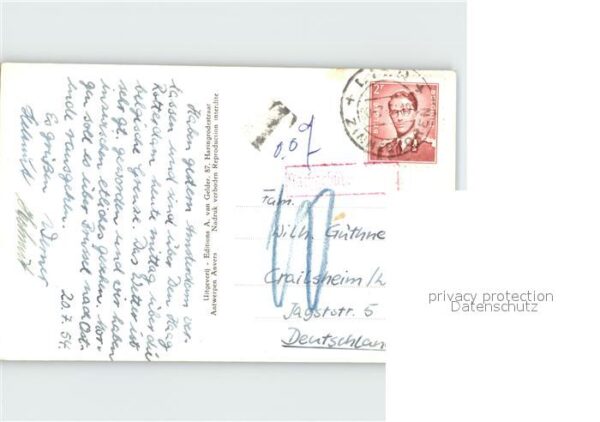 Haben gestern Amsterdam ver-
lassen und sind über Den Haag
Rotterdam heute mittag über die
belgische Grenze. Das Wetter ist
sehr gt. geworden und wir haben
inzwischen etliches gesehen. Mor-
gen soll es über Brüssel nach Ost-
ende rausgehen.
Es grüßen Werner
Helmut
20.7.54.
Uitgeverij - Editions A. van Gelder, 87, Haringrodestraat
Antwerpen Anvers Nadruk verboden Reproduction interdite
T
0.09
10
2F
Fam.
Wilh. Güthne
Crailsheim/
Jagststr. 5
Deutschlan
privacy protection
Datenschutz